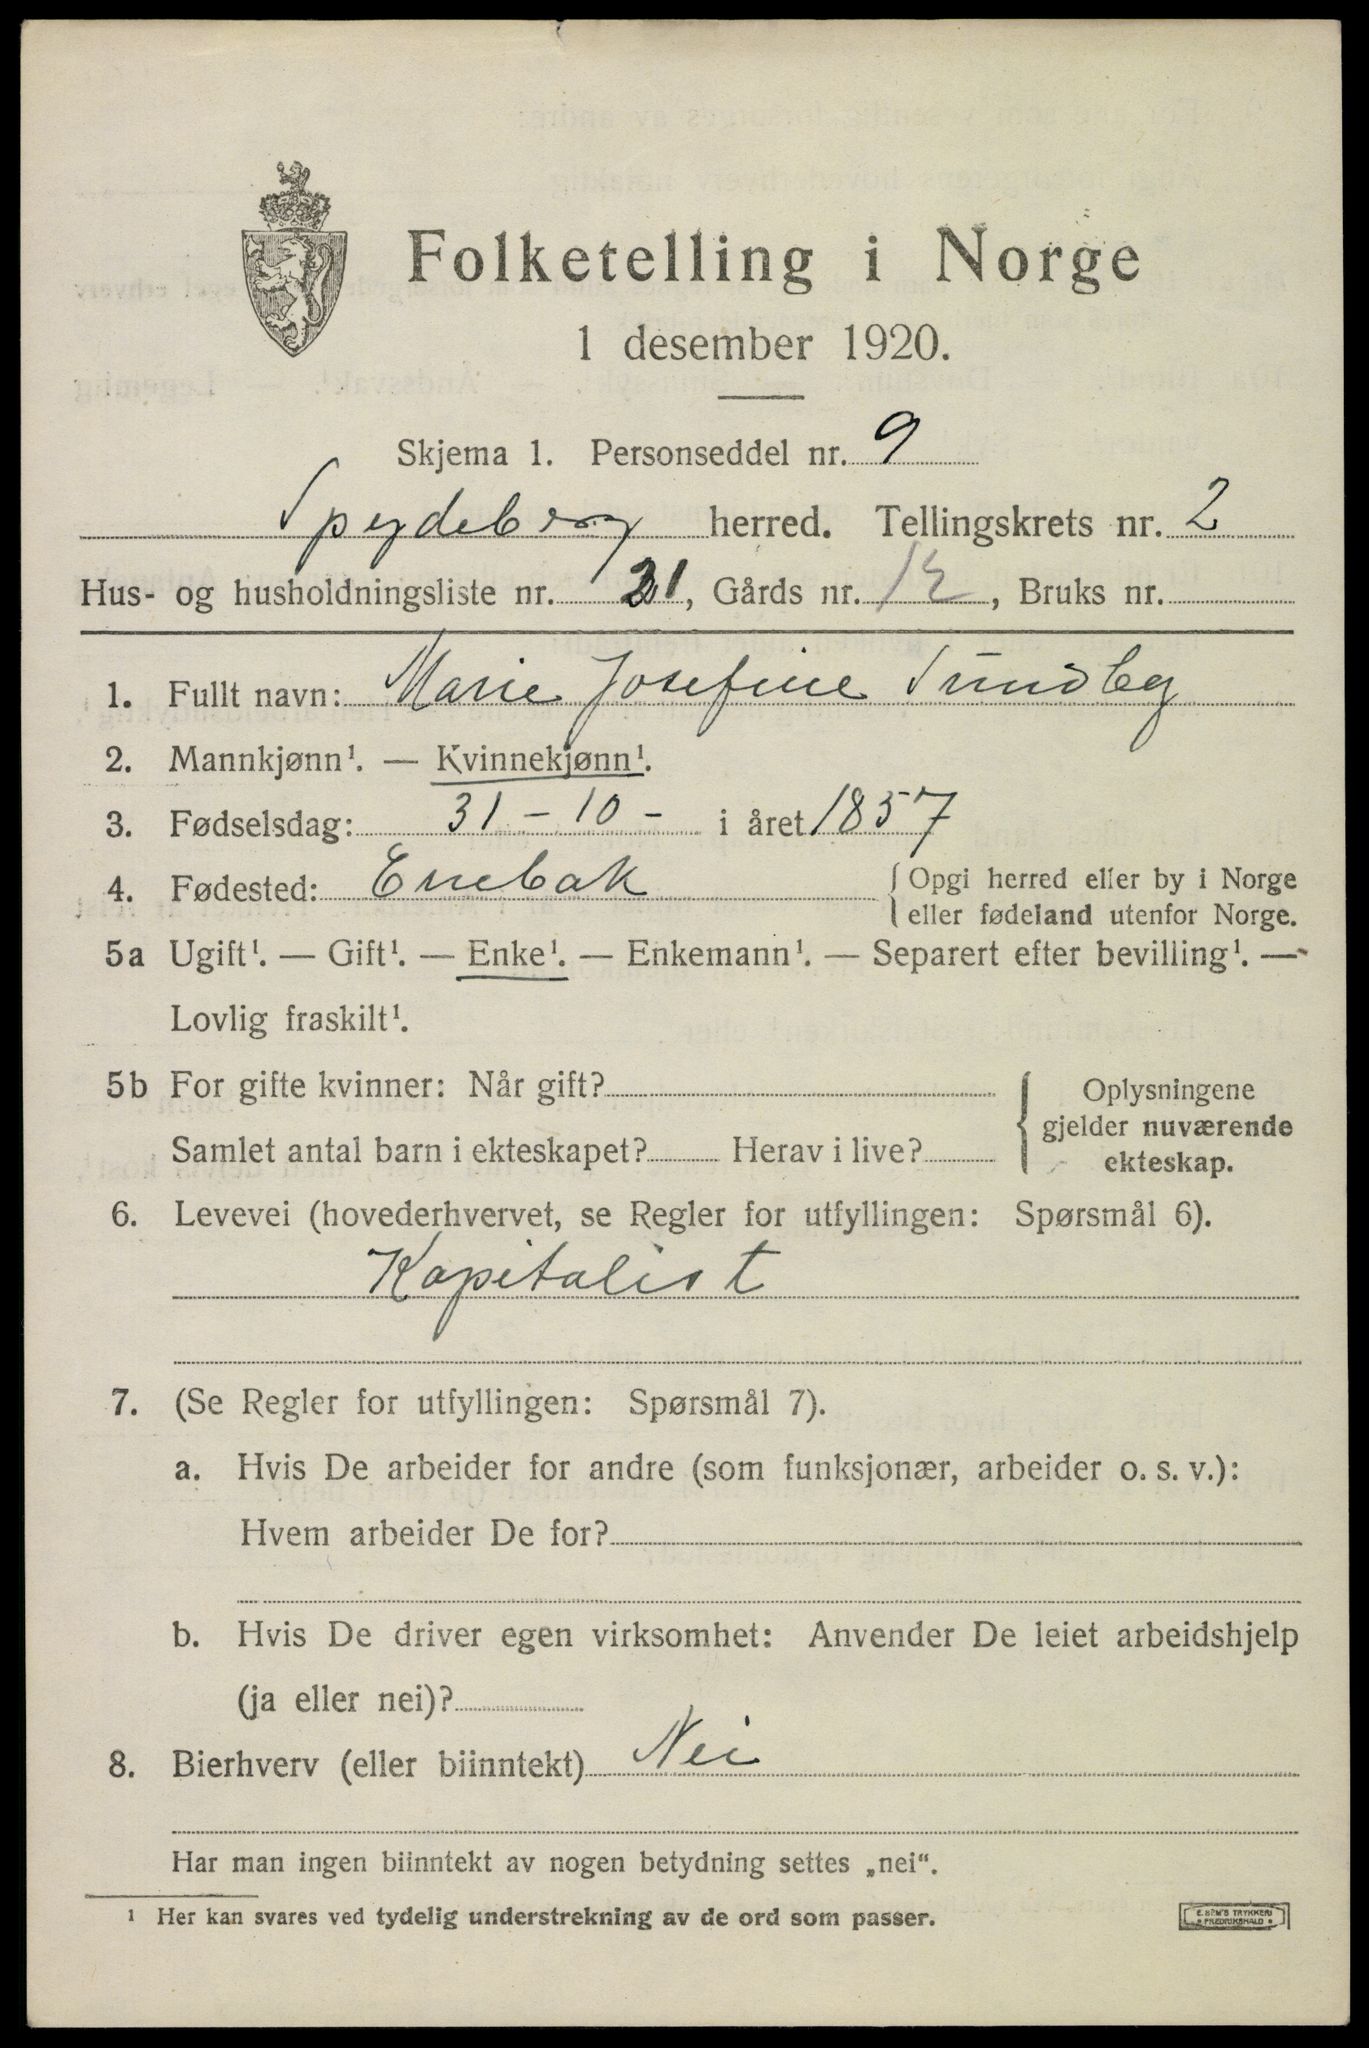 Folketelling i Norge
1 desember 1920.
Skjema 1. Personseddel nr. 9
Spydeberg herred. Tellingskrets nr. 2
Hus- og husholdningsliste nr. 21, Gårds nr. , Bruks nr.
1. Fullt navn: Marie Josefine Sundby
2. Mannkjønn¹. — Kvinnekjønn¹.
3. Fødselsdag: 31 - 10 - i året 1857
4. Fødested: Enebak { Opgi herred eller by i Norge
eller fødeland utenfor Norge.
5a Ugift¹. — Gift¹. — Enke¹. — Enkemann¹. — Separert efter bevilling¹. —
Lovlig fraskilt¹.
5b For gifte kvinner: Når gift?
Samlet antal barn i ekteskapet? Herav i live?
{ Oplysningene
gjelder nuværende
ekteskap.
6. Levevei (hovederhvervet, se Regler for utfyllingen: Spørsmål 6).
Kapitalist
7. (Se Regler for utfyllingen: Spørsmål 7).
a. Hvis De arbeider for andre (som funksjonær, arbeider o. s. v.):
Hvem arbeider De for?
b. Hvis De driver egen virksomhet: Anvender De leiet arbeidshjelp
(ja eller nei)?
8. Bierhverv (eller biinntekt) Nei
Har man ingen biinntekt av nogen betydning settes „nei“.
¹ Her kan svares ved tydelig understrekning av de ord som passer.
E. SEM'S TRYKKERI
• FREDRIKSHALD •